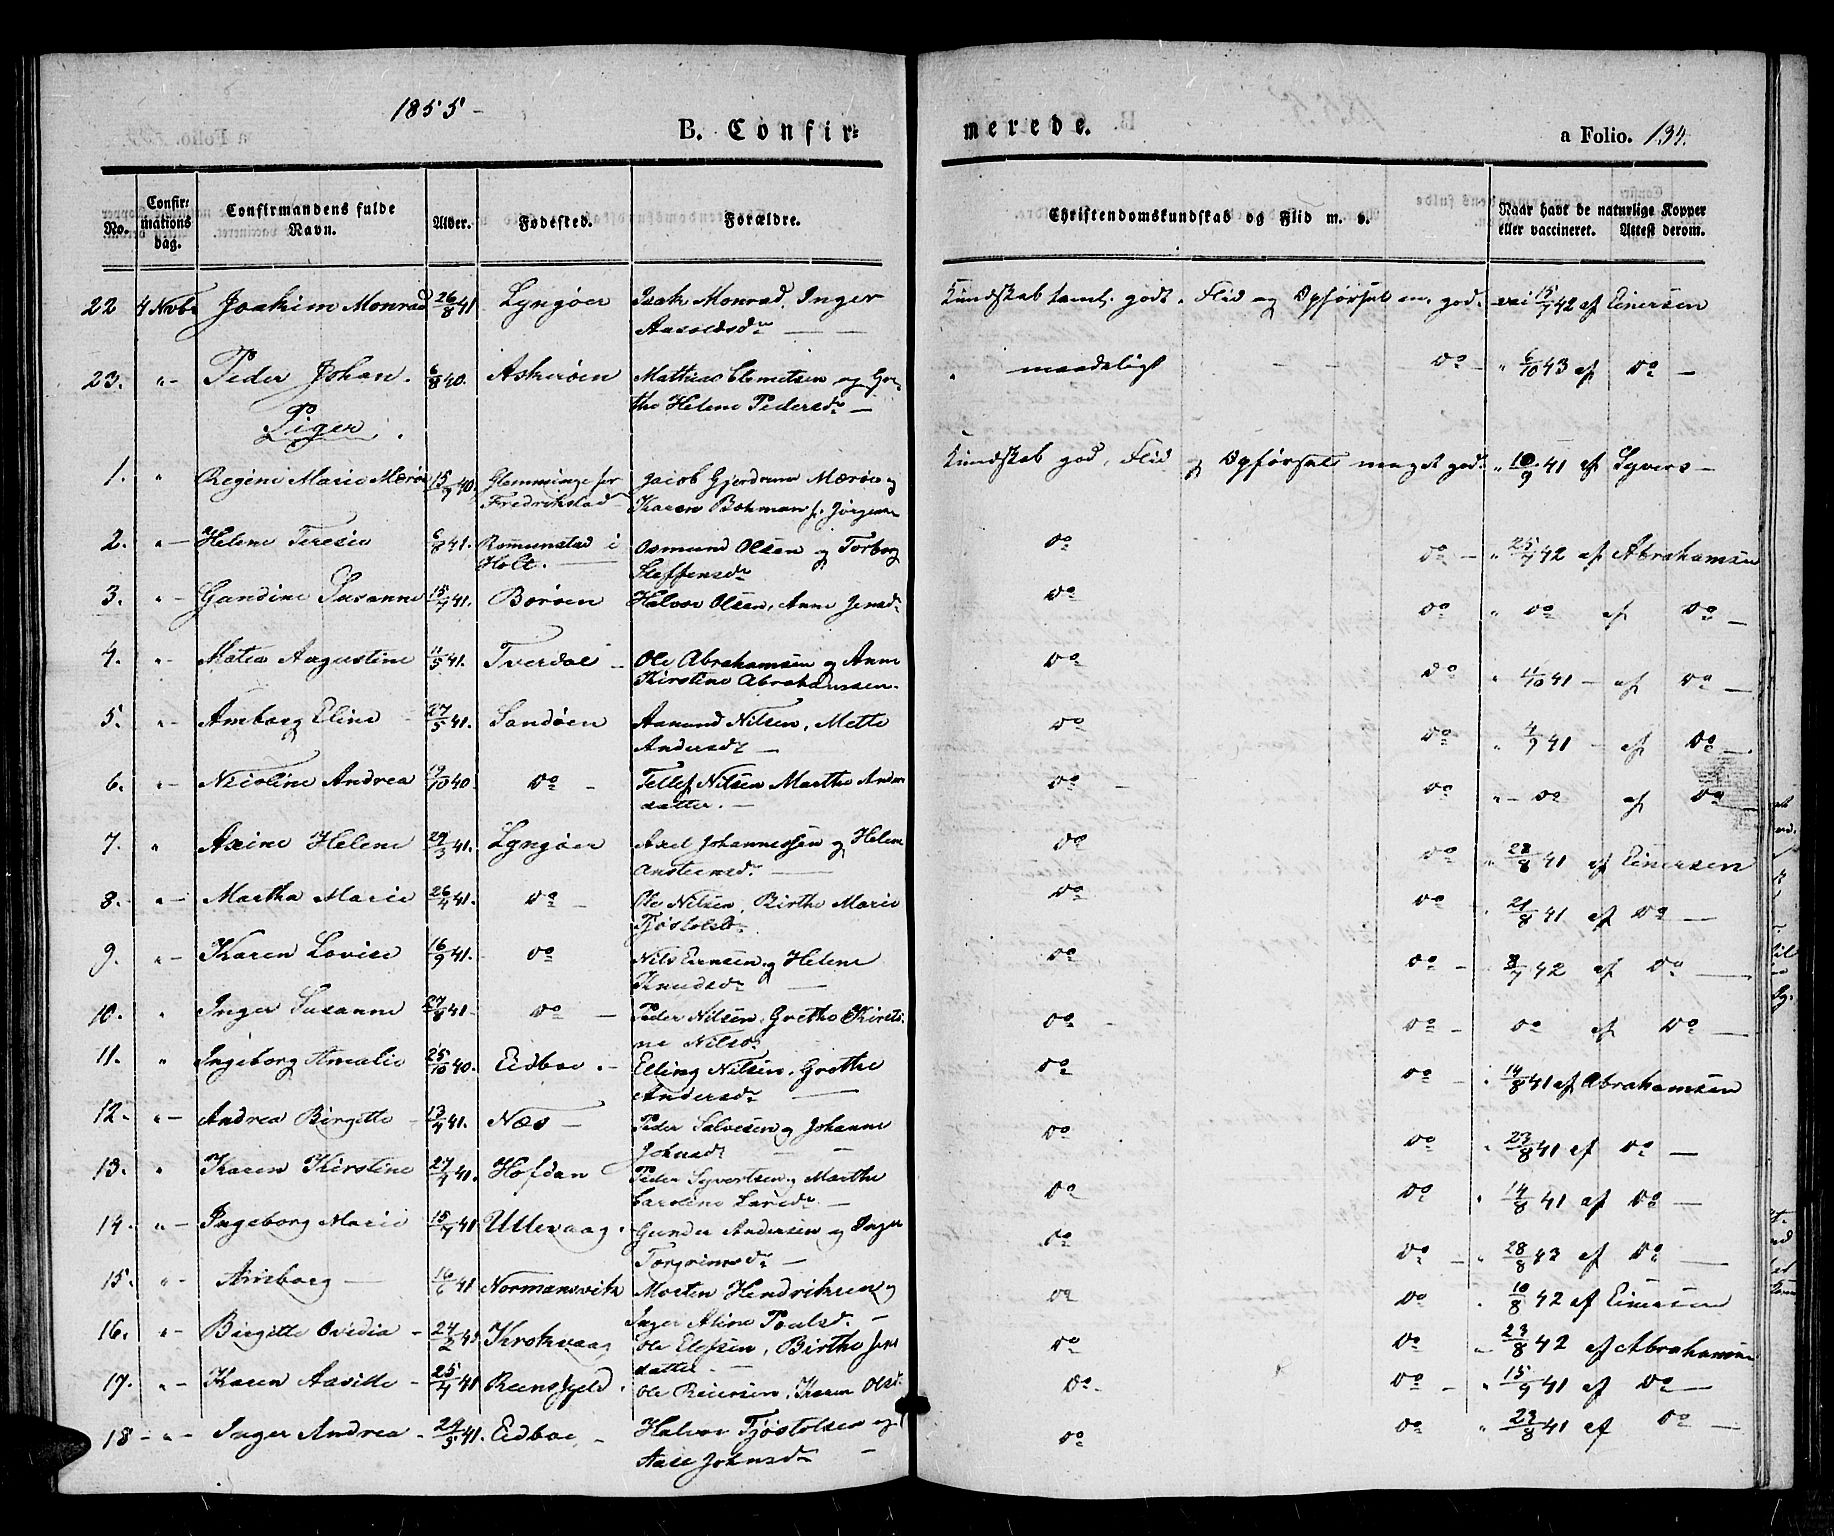 1855 -
B. Confirmerede.
a Folio. 134.
No. Confirmations dag. Confirmandens fulde Navn. Alder. Fødested. Forældre. Christendomskundskab og Flid m. v. Naar havt de naturlige Kopper eller vaccineret. Attest derom.
22 4 Novbr Joakim Monrad 26/8 41 Lyngøer Isak Monrad, Inger Kundskab temml. godt. Flid og Opførsel m. god. vai 15/7 42 af Einersen
Aasoldsdr —
23. " - Peder Johan. 6/8 40. Askerøen Mathias Clemetsen og Gre- " maadeligt - - Do " 6/10 43 af Do —
the Helene Pedersdr —
Piger.
1. " Regine Marie Mærøe 15/9 40. Glemminge for Jacob Gjerdrum Mærøe og Kundskab god, Flid og Opførsel meget god. " 10/9 41 af Syvers —
Fredrikstad Karen Bohman f. Jørgens
2. " - Helene Teresia 6/8 41. Rommunstad i Osmund Olsen og Torborg Do Do - " 25/7 42 af Abrahamsen
Holt. — Steffensdr
3. " - Gundine Susanne 15/7 41. Borøen Halvor Olsen, Anne Jensdr Do Do " Do af Do —
4. " - Matea Augustine 11/5 41. Tverdal - Ole Abrahamsen og Anne Do Do " 4/10 41 - af Do —
Kirstine Abrahamsen.
5. " - Amborg Eline 27/5 41. Sandøen Aanund Nilsen, Mette Do Do " 4/9 41 - af Do —
Andersdr —
6. " - Nicoline Andrea 19/10 40 Do - Tellef Nilsen Marthe Anders Do Do " - Do af Do
datter. —
7. " Axine Helene 29/3 41. Lyngøer Axel Johannessen og Helene Do Do " 28/8 41 af Einersen
Ansteensdr —
8. " - Martha Marie 26/4 41. Do - Ole Nilsen, Birthe Marie Do Do - " 21/8 41 af Do —
Tjøstolsdr
9. " - Karen Lovise 16/9 41. Do Nils Evensen og Helene Do Do - 3/7 42 af Do —
Knudsdr —
10. " Inger Susanne 27/8 41 - Do - Peder Nilsen, Grethe Kirsti- Do - Do - Do af Do —
ne Nilsdr
11. " Ingeborg Amalie 25/10 40. Eidboe. - Elling Nilsen, Grethe Do Do - " 14/8 41 af Abrahamsen
Andersdr —
12. " - Andrea Birgitte - 13/4 41. Næs — Peder Salvesen og Johanne Do Do " 23/8 41 af Do —
Johnsdr —
13. " Karen Kirstine 27/4 41. Hofdan Peder Syvertsen og Marthe Do Do " 14/8 41 af Do —
Caroline Larsdr —
14. " - Ingeborg Marie 15/7 41 Uttevaag. Gunder Andersen og Inger Do Do — " 28/8 43 af Do —
Torgrimsdr —
15. " - Amborg — 16/6 41 Normansvik Morten Hendriksen og Do Do " 10/8 42 af Einersen
Inger Aline Poulsd. —
16. " - Birgitte Ovedia - 24/2 41 Krokvaag Ole Elefsen, Birthe Jens Do Do - " 23/8 42 af Abrahamsen
datter —
17. " - Karen Aasille - 25/4 41 Reensfjeld. Ole Reiersen, Karen Olsd. Do - Do - " 15/9 41 af Do —
18 - " - Inger Andrea - 24/3 41. Eidboe - Halvor Tjøstolsen og Do Do " 23/8 41 af Do —
Aase Johnsdr —